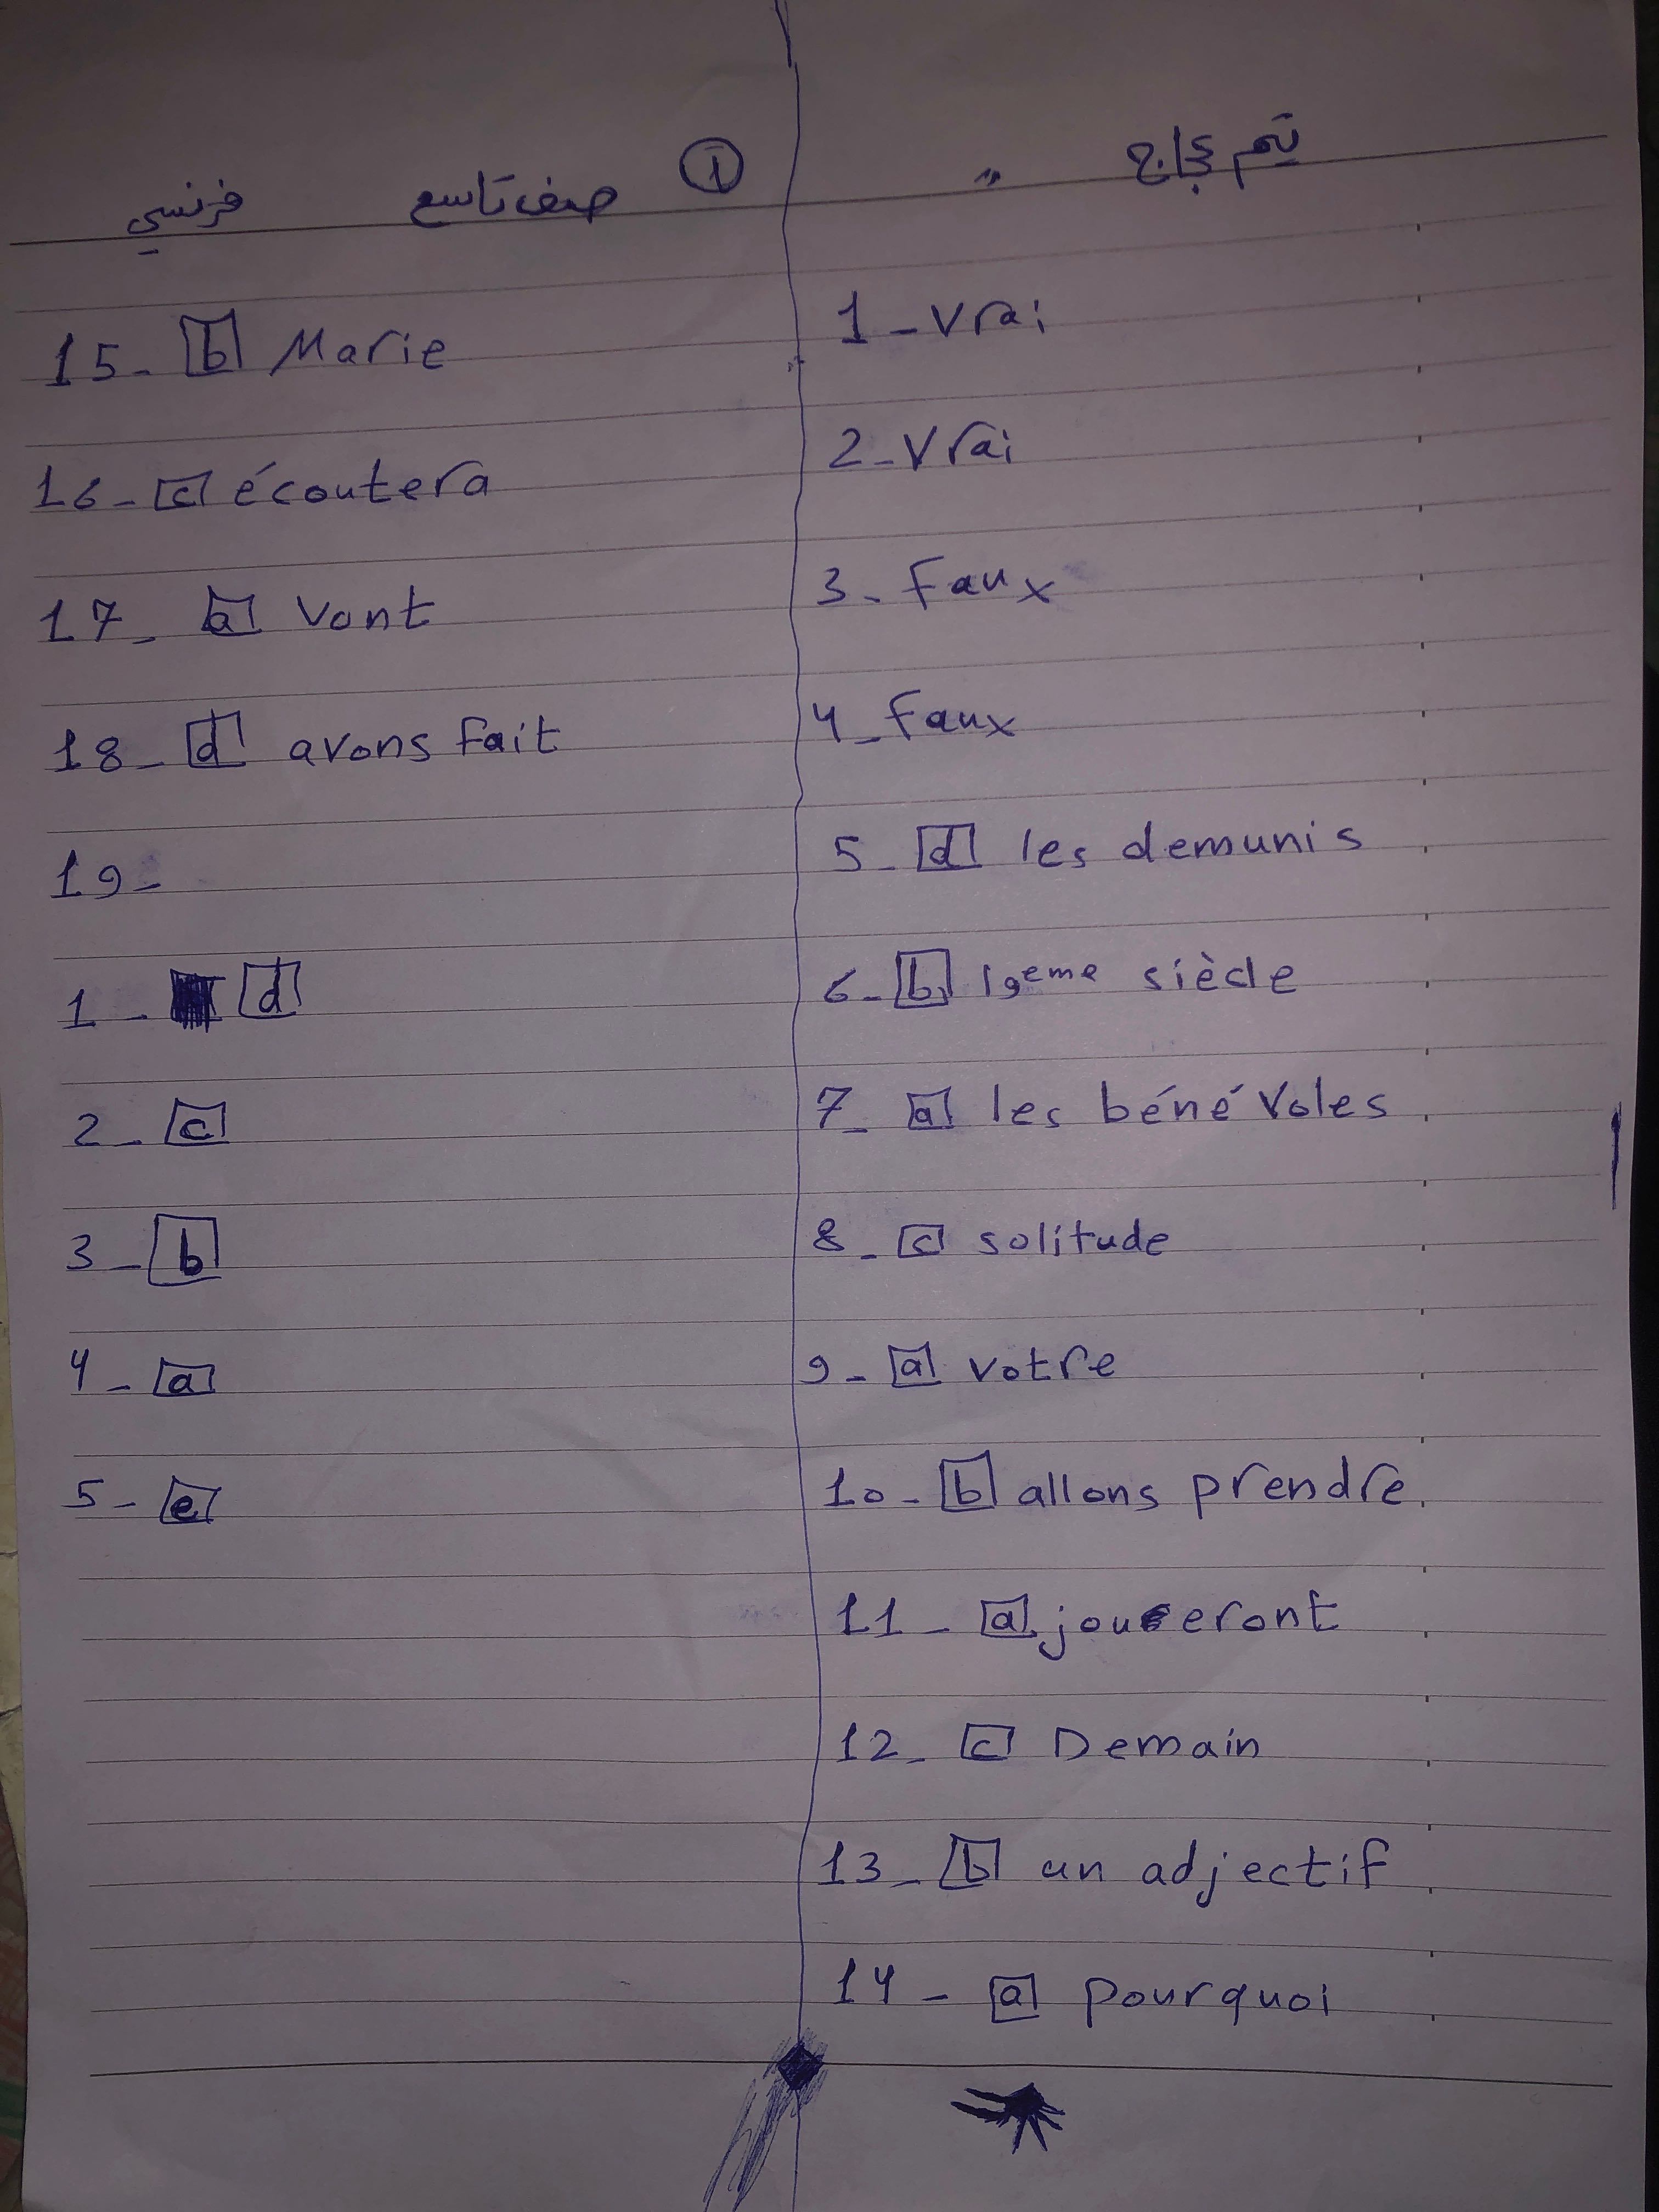 تيم عجاج " ① صف تاسع فرنسي
1 - Vrai
2 - Vrai
3 - Faux
4 - Faux
5 - d les demunis
6 - b 19eme siècle
7 - a les bénévoles
8 - c solitude
9 - a votre
10 - b allons prendre.
11 - a joueront
12 - c Demain
13 - b un adjectif
14 - a pourquoi
15 - b Marie
16 - c écoutera
17 - a Vont
18 - d avons fait
19 -
1 - d
2 - c
3 - b
4 - a
5 - e